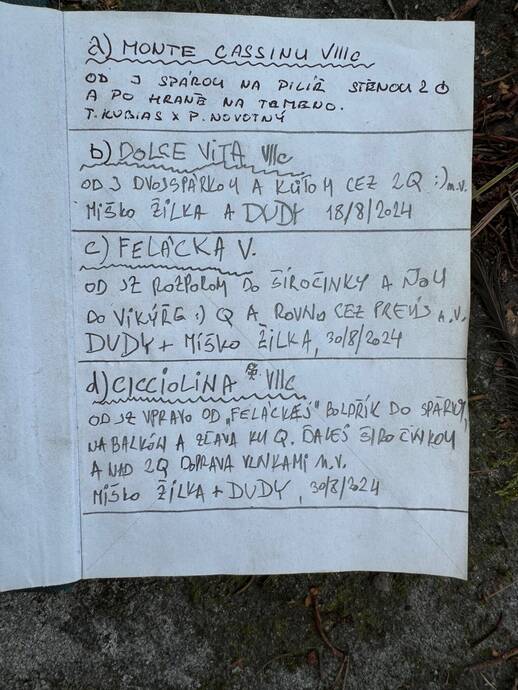 a) MONTE CASSINU VIIIc
OD J SPÁROU NA PILÍŘ STĚNOU 2
A PO HRANĚ NA TEMENO.
T. KUBIAS X P. NOVOTNÝ
b) DOLCE VITA VIIc
OD J DVOJSPÁRKOU A KÚTOM CEZ 2Q :) m.v.
MIŠKO ŽILKA A DUDY 18/8/2024
c) FELÁCKA V.
OD SZ ROZPOROM DO ŠÍROČINKY A ŇOU
DO VIKÝŘE :) Q A ROVNO CEZ PREVIS n.v.
DUDY + MIŠKO ŽILKA, 30/8/2024
d) CICCIOLINA VIIc
OD SZ VPRAVO OD „FELÁCKEJ" BOLDŘÍK DO SPÁRKY,
NA BALKÓN A ZĽAVA KU Q. ĎALEJ ŠÍROČINKOU
A NAD 2Q DOPRAVA VLNKAMI n.v.
MIŠKO ŽILKA + DUDY, 30/8/2024